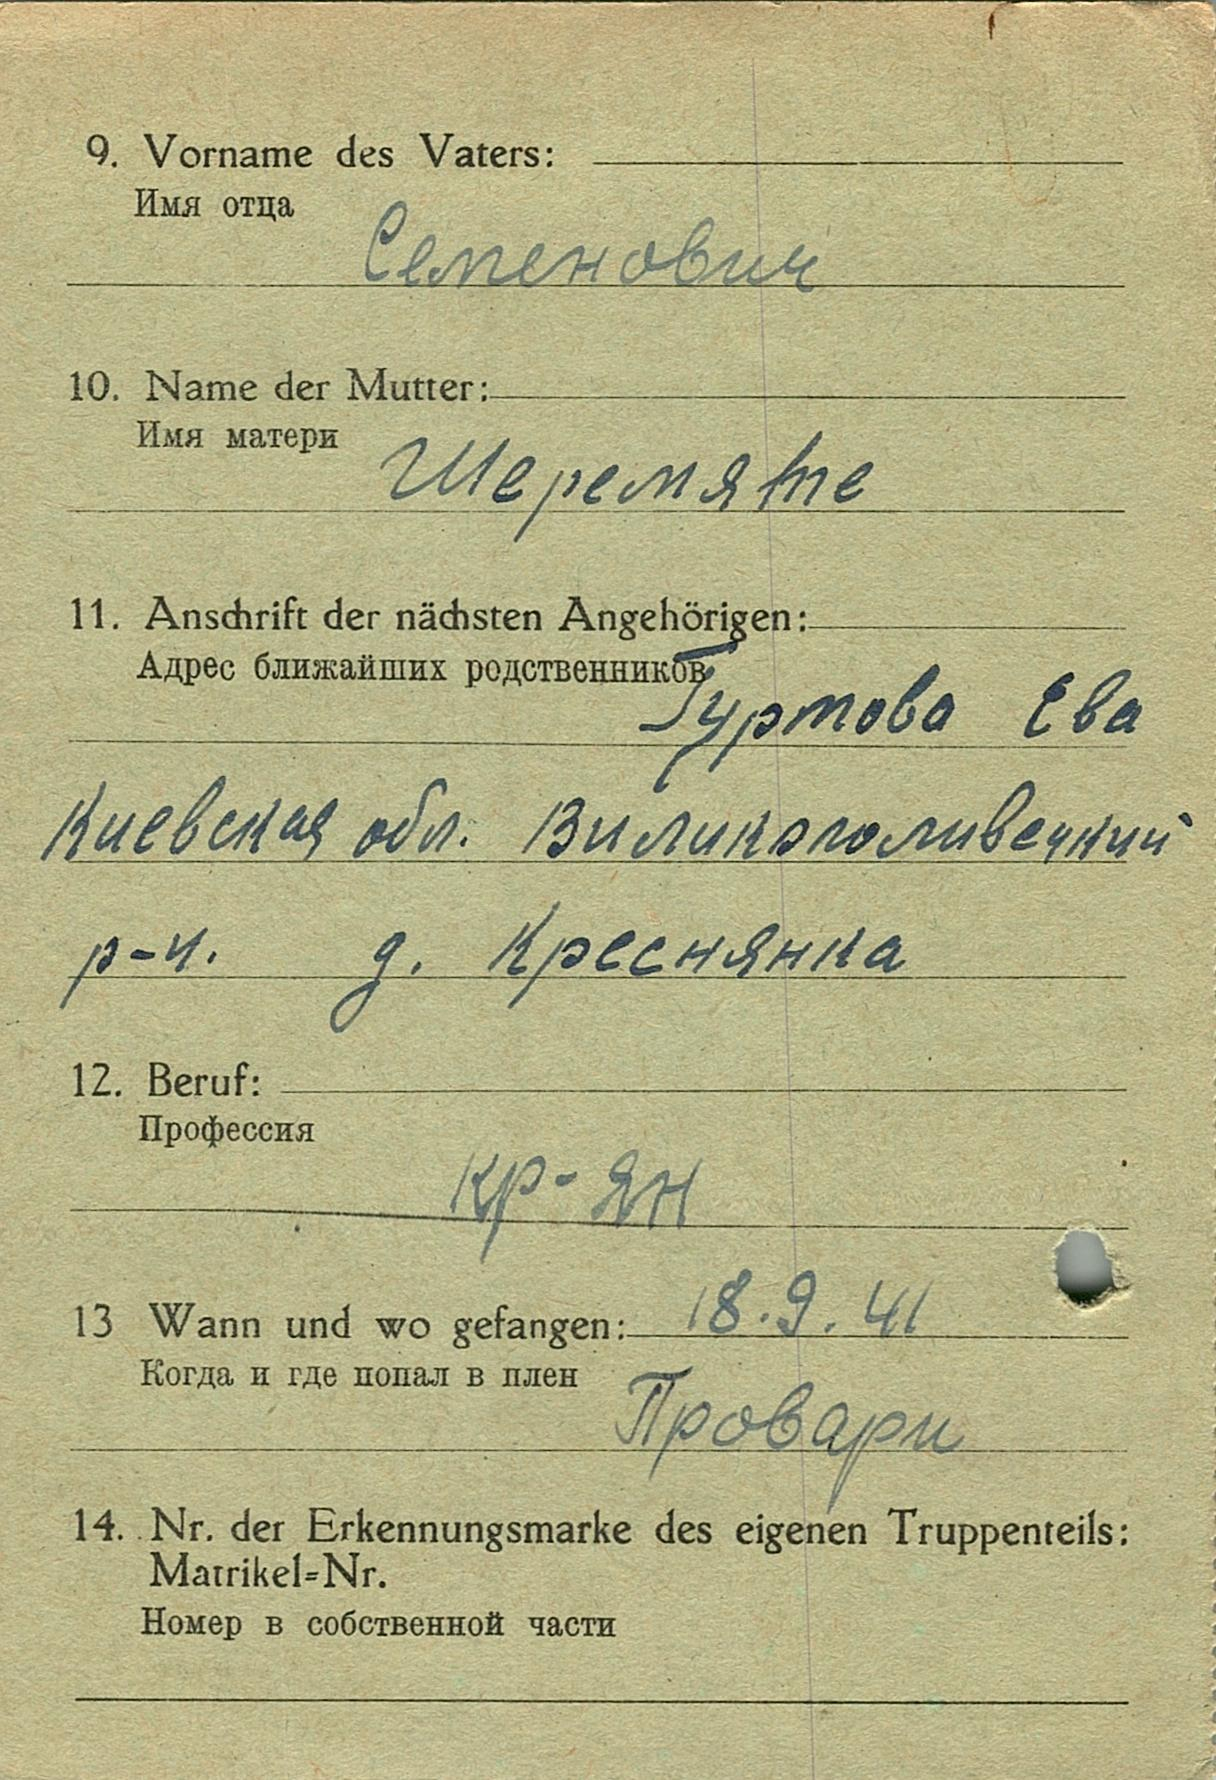 9. Vorname des Vaters:
Имя отца
Семенович
10. Name der Mutter:
Имя матери
Шеремяте
11. Anschrift der nächsten Angehörigen:
Адрес ближайших родственников
Гуртова Ева
Киевская обл.
р-н. д. Креснянка
12. Beruf:
Профессия
кр-ян
13 Wann und wo gefangen: 18.9.41
Когда и где попал в плен
Провари
14. Nr. der Erkennungsmarke des eigenen Truppenteils:
Matrikel=Nr.
Номер в собственной части